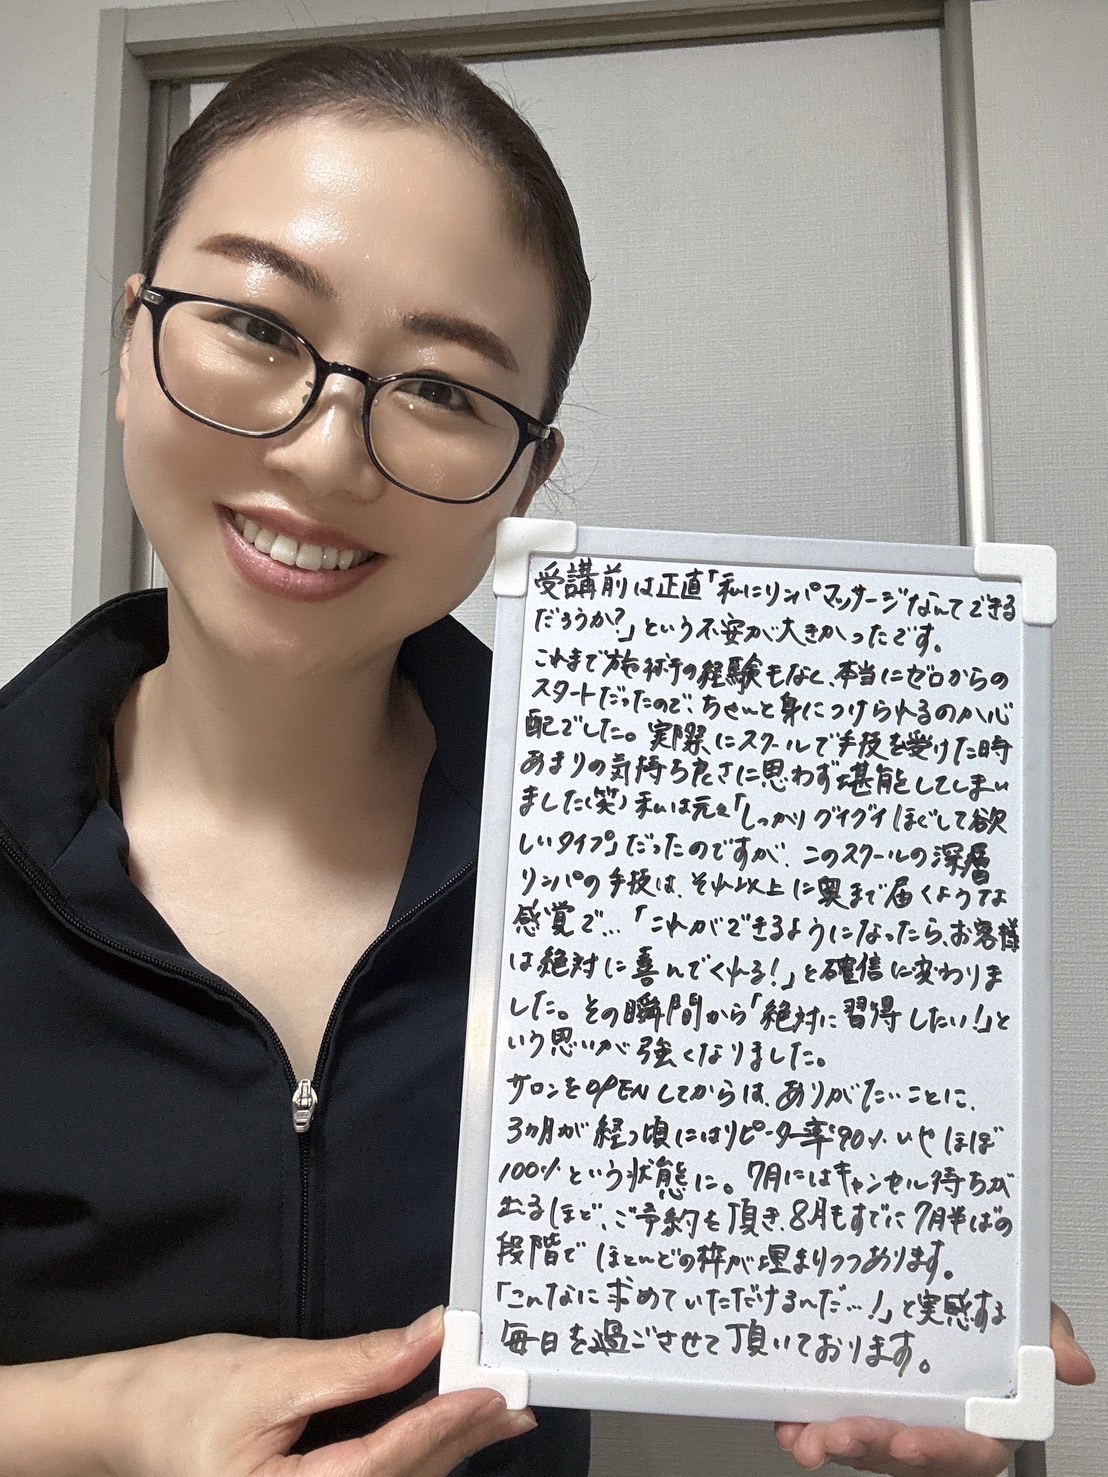 受講前は正直「私にリンパマッサージなんてできる
だろうか?」という不安が大きかったです。
これまで施術の経験もなく、本当にゼロからの
スタートだったので、ちゃんと身につけられるのか心
配でした。実際にスクールで手技を受けた時
あまりの気持ち良さに思わず堪能してしまい
ました(笑) 私は元々「しっかりグイグイほぐして欲
しいタイプ」だったのですが、このスクールの深層
リンパの手技は、それ以上に奥まで届くような
感覚で…「これができるようになったら、お客様
は絶対に喜んでくれる!」と確信に変わりま
した。その瞬間から「絶対に習得したい!」と
いう思いが強くなりました。
サロンをOPENしてからは、ありがたいことに、
3ヵ月が経つ頃にはリピーター率90%いやほぼ
100%という状態に。7月にはキャンセル待ちが
出るほど、ご予約を頂き、8月もすでに7月半ばの
段階でほとんどの枠が埋まりつつあります。
「こんなに求めていただけるんだ…!」と実感する
毎日を過ごさせて頂いております。